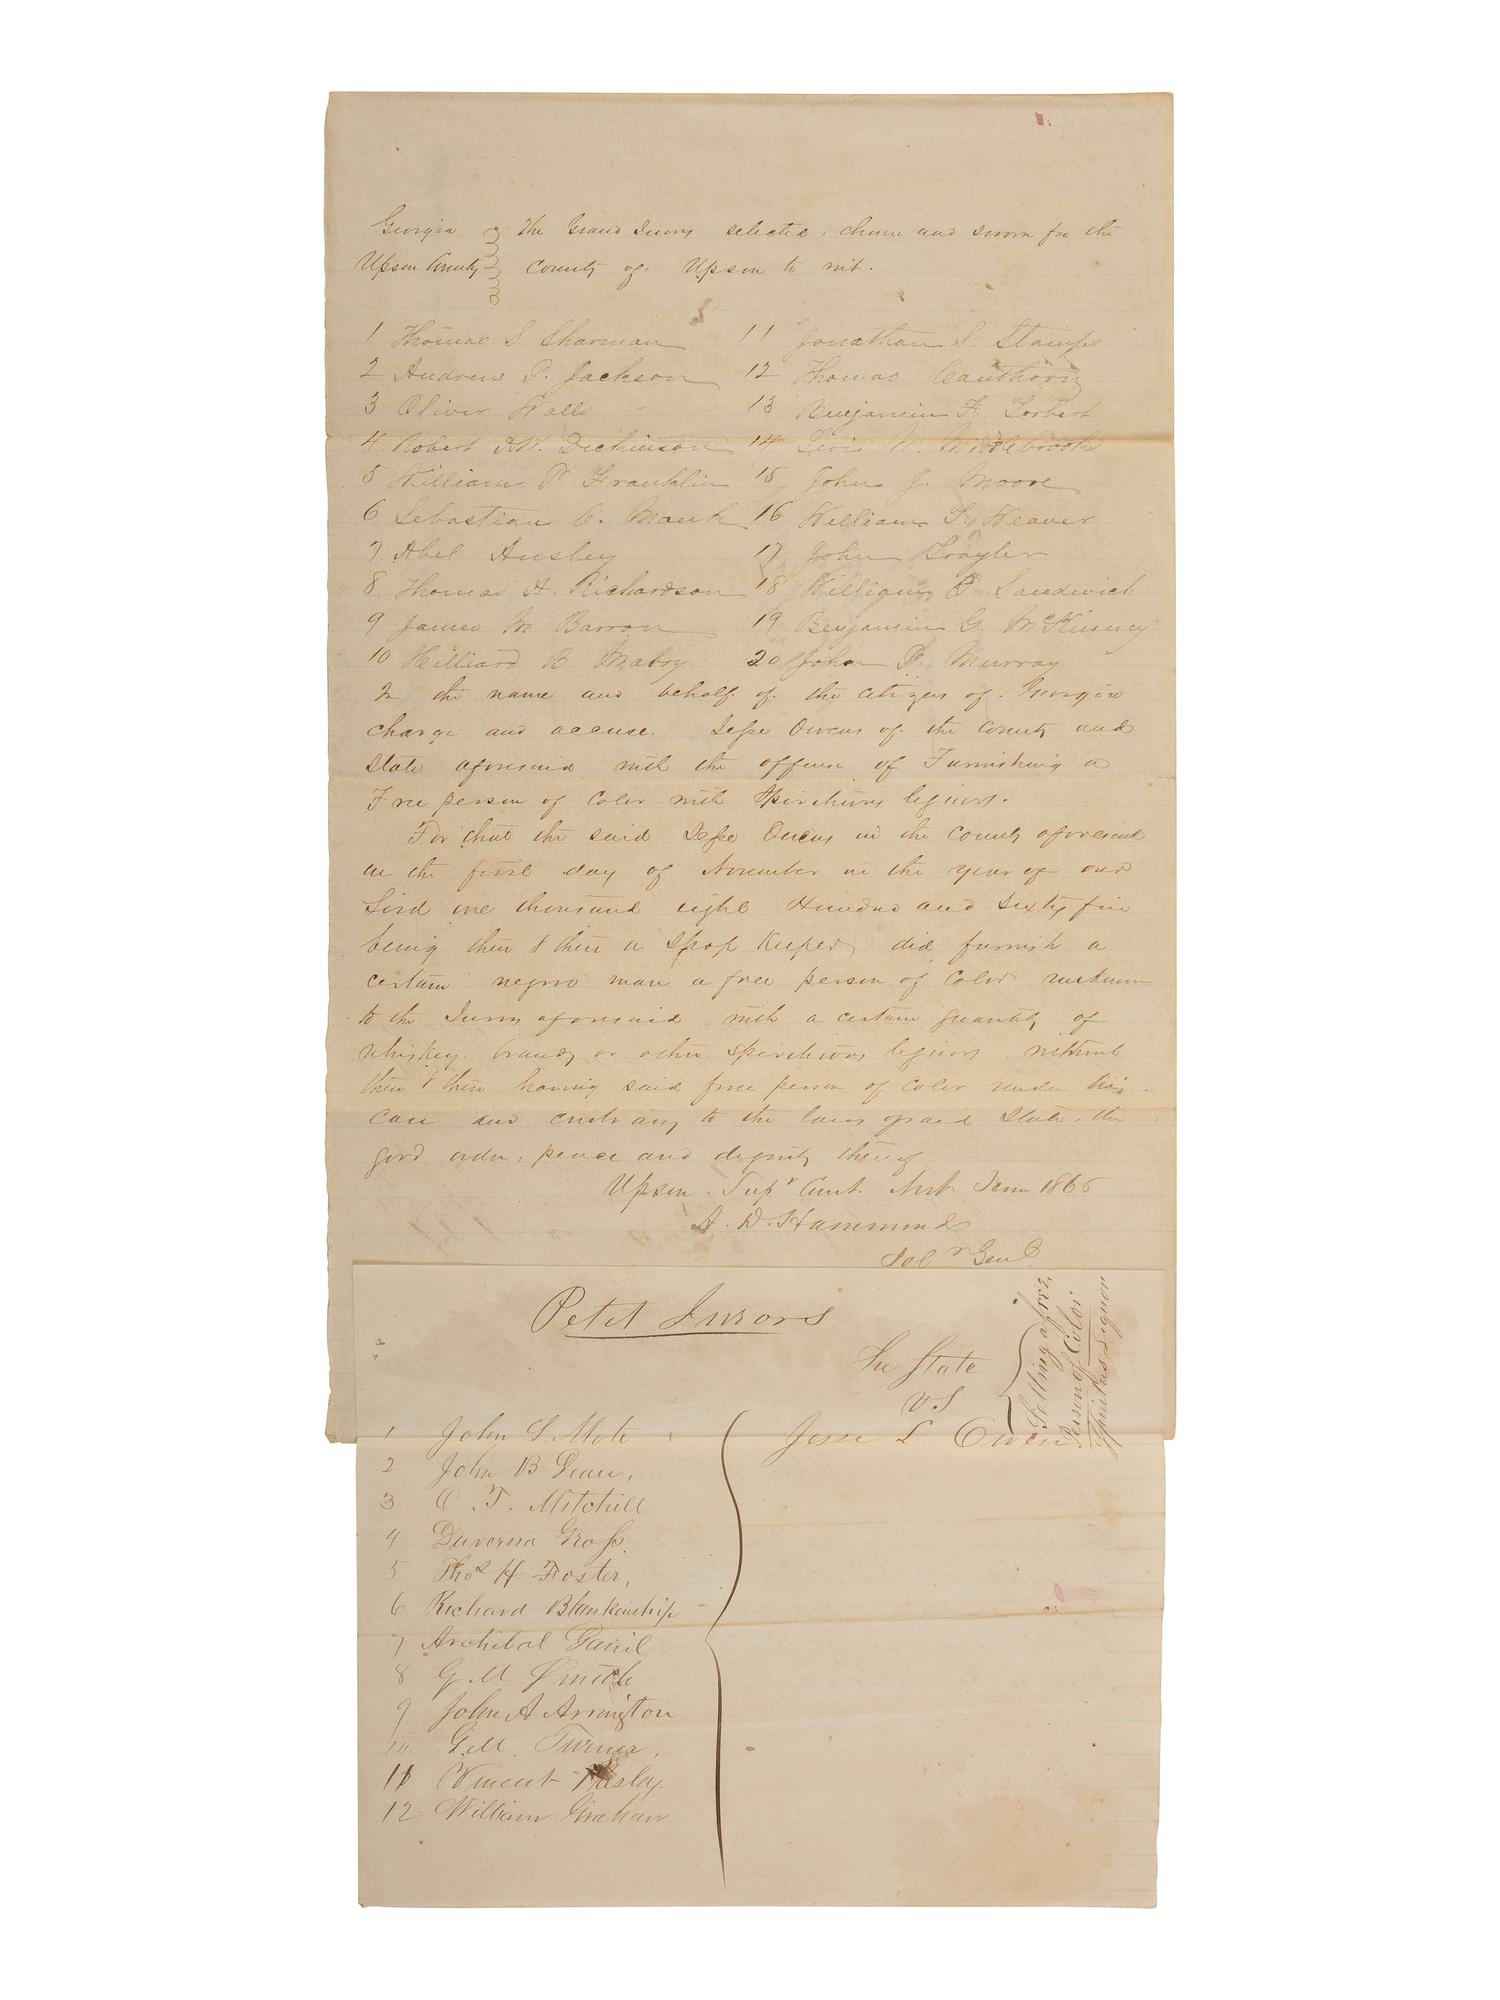 Georgia The Grand Jurors selected, chosen and sworn for the
Upson County County of Upson to wit.
1 Thomas S Sharman
2 Andrew P. Jackson
3 Oliver Walls
4 Robert D.W. Dickinson
5 William P Franklin
6 Sebastian C. Mauk
7 Abel Ansley
8 Thomas H. Richardson
9 James M Barron
10 Hilliard B Mabry
11 Jonathan S. Stamps
12 Thomas Cauthorn
13 Benjamin F. Torbert
14 N. Middlebrooks
15 John J. Moore
16 William T. Weaver
17 John Traylor
18 William Sandwich
19 Benjamin G. McKinney
20 John P. Murray
In the name and behalf of the citizens of Georgia
charge and accuse Jesse Owens of the County and
State aforesaid with the offense of Furnishing a
Free person of Color with Spirituous liquors.
For that the said Jesse Owens in the County aforesaid
on the first day of November in the year of our
Lord one thousand eight Hundred and Sixty five
being then & there a Shop Keeper, did furnish a
certain negro man a free person of Color unknown
to the Jurors aforesaid with a certain quantity of
whiskey brandy or other Spirituous liquors without
then & there having said free person of Color under his
care and contrary to the laws of said State, the
good order, peace and dignity thereof
Upson Supr Court. Term 1865
A. D. Hammond
Solr Genl
Petit Jurors
The State
vs
Jesse L Owen
Selling a free
Person of Color
Liquor
1 John S Mote
2 John B Dean,
3 O. T. Mitchell
4 Duverna Gross.
5 Thos H Foster,
6 Richard Blankenship
7 Archibal Daniel
8 G M Smith
9 John A Arrington
10 G.M. Turner,
11 Vincent Presley.
12 William Graham